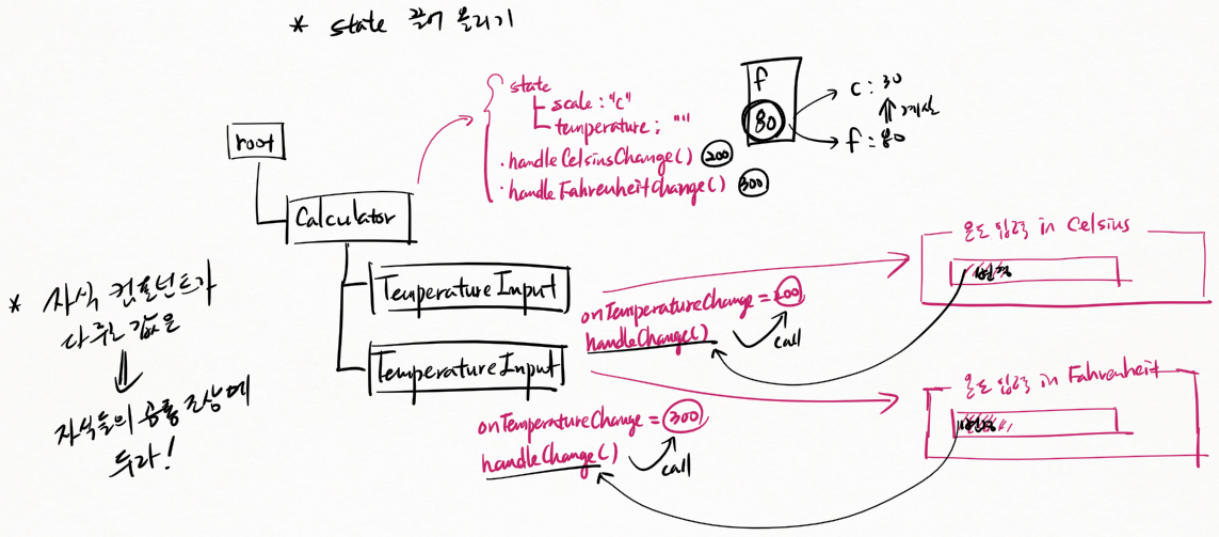 * state 끌어 올리기
state
scale : "c"
temperature : ""
· handleCelsiusChange() 200
· handleFahrenheitChange() 300
f
80
c : 30
⇑ 계산
f : 80
root
Calculator
TemperatureInput
TemperatureInput
* 자식 컴포넌트가
다룰 값은
⇓
자식들의 공통 조상에
두라!
onTemperatureChange = 200
handleChange()
call
onTemperatureChange = 300
handleChange()
call
온도 입력 in Celsius
온도 입력 in Fahrenheit